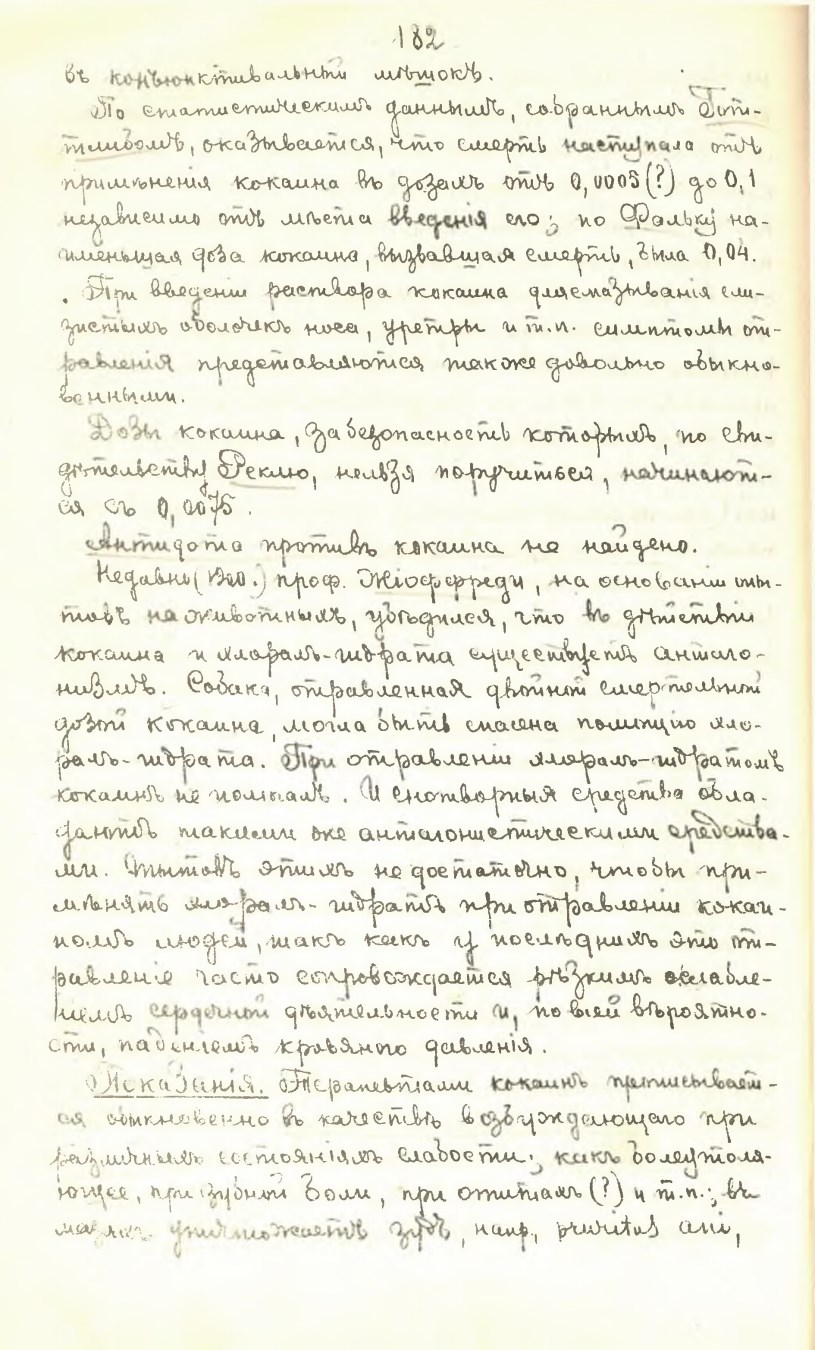 182
въ конъюнктивальный мѣшокъ.
По статистическимъ даннымъ, собраннымъ Гот-
тлибомъ, оказывается, что смерть наступала отъ
примѣненія кокаина въ дозахъ отъ 0,0005(?) до 0,1
независимо отъ мѣста введенія его; по Фальку на-
именьшая доза кокаина, вызвавшая смерть, была 0,04.
При введеніи раствора кокаина для смазыванія сли-
зистыхъ оболочекъ носа, уретры и т.п. симптомы от-
равленія представляются также довольно обыкно-
венными.
Дозы кокаина, за безопасность которыхъ, по сви-
дѣтельству Реклю, нельзя поручиться, начинают-
ся съ 0,0075.
Антидота противъ кокаина не найдено.
Недавно (1900.) проф. Жіоффреди, на основаніи опы-
товъ на животныхъ, убѣдился, что въ дѣйствіи
кокаина и хлоралъ-гидрата существуетъ антаго-
низмъ. Собака, отравленная двойной смертельной
дозой кокаина, могла быть спасена помощію хло-
ралъ-гидрата. При отравленіи хлоралъ-гидратомъ
кокаинъ не помогалъ. И снотворныя средства обла-
даютъ такими же антагонистическими средства-
ми. Опытовъ этихъ не достаточно, чтобы при-
мѣнять хлоралъ-гидратъ при отравленіи кокаи-
номъ людей, такъ какъ у послѣднихъ это от-
равленіе часто сопровождается рѣзкимъ ослабле-
ніемъ сердечной дѣятельности и, по всей вѣроятно-
сти, паденіемъ кровяного давленія.
Показанія. Терапевтами кокаинъ прописывает-
ся обыкновенно въ качествѣ возбуждающаго при
различныхъ состояніяхъ слабости; какъ болеутоля-
ющее, при зубной боли, при отитахъ (?) и т.п.; въ
мазяхъ уничтожаетъ зудъ, напр., pruritus ani,